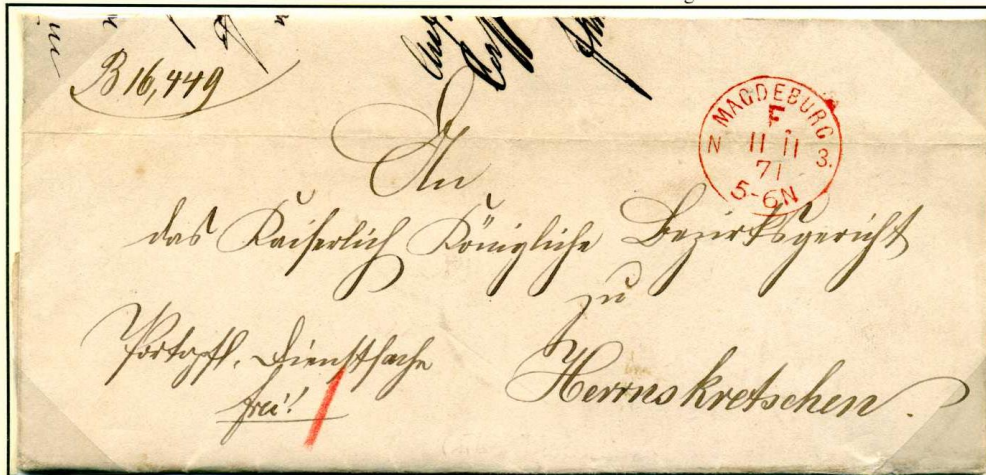 B 16,449
MAGDEBURG
F.
N 11 11 3.
71
5-6N
An
das Kaiserlich Königliche Bezirksgericht
zu
Herrnskretschen.
Portopfl. Dienstsache
frei!